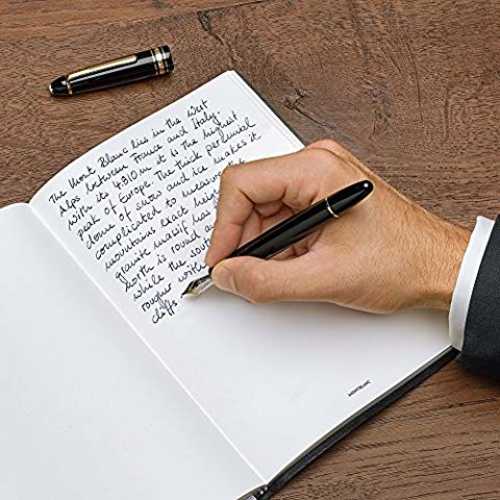 The Mont Blanc lies in the West
Alps between France and Italy.
With its 4.810 m it is the highest
peak of Europe. The thick perennial
dome of snow and ice makes it
complicated to measure the
mountains exact heigh
granite massif has
North is round a
while the sout
rougher with
cliffs
MONTBLANC